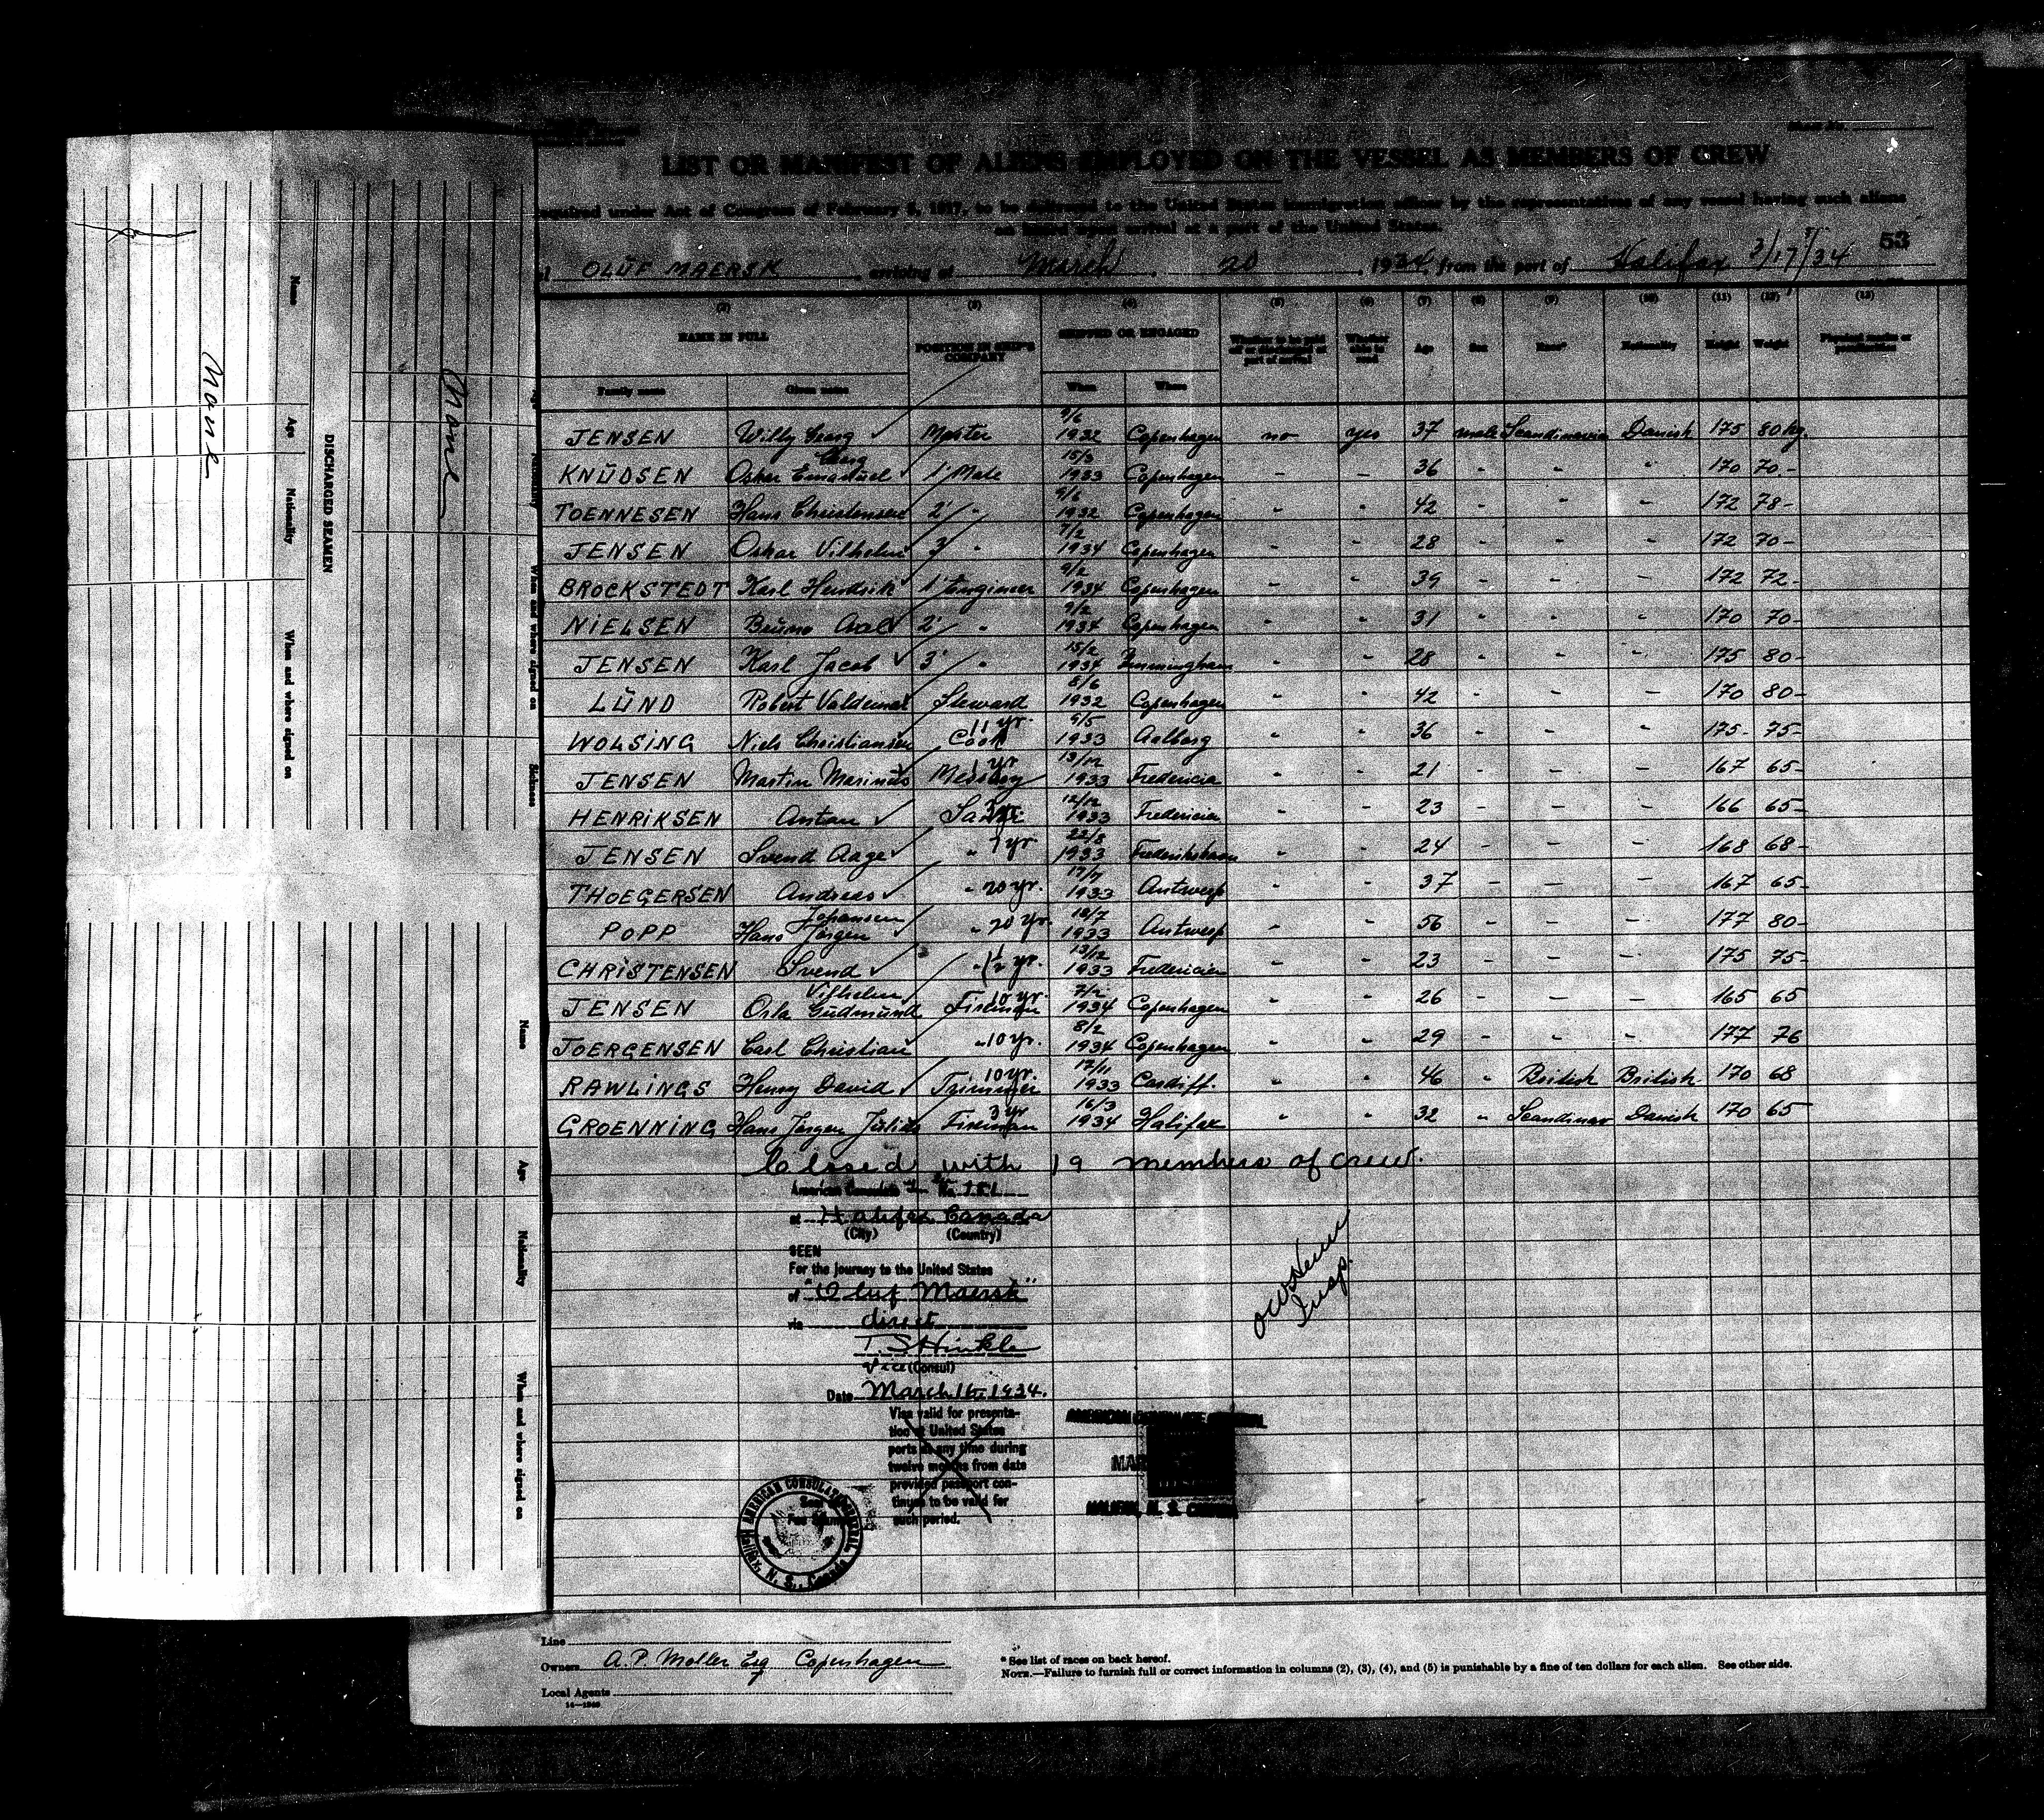 LIST OR MANIFEST OF ALIENS EMPLOYED ON THE VESSEL AS MEMBERS OF CREW
required under Act of Congress of February 5, 1917, to be delivered to the United States immigration officer by the representatives of any vessel having such aliens
on board upon arrival at a port of the United States.
53
OLŬF MAERSK, arriving at March 20, 1934, from the port of Halifax 3/17/34
(2) (3) (4) (5) (6) (7) (8) (9) (10) (11) (12) (13)
NAME IN FULL POSITION IN SHIP'S COMPANY SHIPPED OR ENGAGED Whether to be paid off or discharged at port of arrival Whether able to read Age Sex Race* Nationality Height Weight Physical marks or peculiarities
Family name Given name When Where
JENSEN Willy Georg Master 9/6 1932 Copenhagen no yes 37 male Scandinavia Danish 175 80 kg.
KNŬDSEN Oskar Emanŭel Georg 1' Mate 15/3 1933 Copenhagen - - 36 - - - 170 70 -
TOENNESEN Hans Christensen 2' - 9/6 1932 Copenhagen - - 42 - - - 172 78 -
JENSEN Oskar Vilhelm 3' - 7/2 1934 Copenhagen - - 28 - - - 172 70 -
BROCKSTEDT Karl Hendrik 1' Engineer 9/2 1934 Copenhagen - - 39 - - - 172 72 -
NIELSEN Brŭno Axel 2' - 9/2 1934 Copenhagen - - 31 - - - 170 70 -
JENSEN Karl Jacob 3' - 15/2 1934 Immingham - - 28 - - - 175 80 -
LŬND Robert Valdemar Steward 8/6 1932 Copenhagen - - 42 - - - 170 80 -
WOLSING Niels Christiansen Cook 11 yr. 9/5 1933 Aalborg - - 36 - - - 175 - 75 -
JENSEN Martin Marinŭs Messboy 1 yr 13/12 1933 Fredericia - - 21 - - - 167 65 -
HENRIKSEN Anton 12/12 1933 Fredericia - - 23 - - - 166 65 -
JENSEN Svend Aage - 7 yr 22/8 1933 Frederikshavn - - 24 - - - 168 68 -
THOEGERSEN Andreas - 20 yr. 17/7 1933 Antwerp - - 37 - - - 167 65 -
POPP Hans Jörgen Johansen - 20 yr. 18/7 1933 Antwerp - - 56 - - - 177 80 -
CHRISTENSEN Svend - 1½ yr. 13/12 1933 Fredericia - - 23 - - - 175 75 -
JENSEN Orla Gŭdmŭnd Vilhelm Fireman 10 yr. 7/2 1934 Copenhagen - - 26 - - - 165 65
JOERGENSEN Carl Christian - 10 yr. 8/2 1934 Copenhagen - - 29 - - - 177 76
RAWLINGS Henry David Trimmer 10 yr. 17/11 1933 Cardiff. - - 46 - British British 170 68
GROENNING Hans Jørgen Jŭliŭs Fireman 3 yr 16/3 1934 Halifax - - 32 - Scandinav Danish 170 65
Closed with 19 members of crew.
American Consulate
at Halifax Canada
(City) (Country)
SEEN
For the journey to the United States
of "Oluf Maersk"
via direct
T. S. Hinkle
Vice (Consul)
Date March 16, 1934.
Visa valid for presenta-
tion at United States
ports at any time during
twelve months from date
provided passport con-
tinues to be valid for
such period.
AMERICAN CONSULATE GENERAL
MAR
HALIFAX, N. S. CANADA
AMERICAN CONSULATE GENERAL, Halifax, N. S., Canada
Insp.
Line
Owners A. P. Moller Esq Copenhagen
Local Agents
* See list of races on back hereof.
NOTE.—Failure to furnish full or correct information in columns (2), (3), (4), and (5) is punishable by a fine of ten dollars for each alien. See other side.
DISCHARGED SEAMEN
Name Age Nationality When and where signed on
None
None
Name Age Nationality When and where signed on